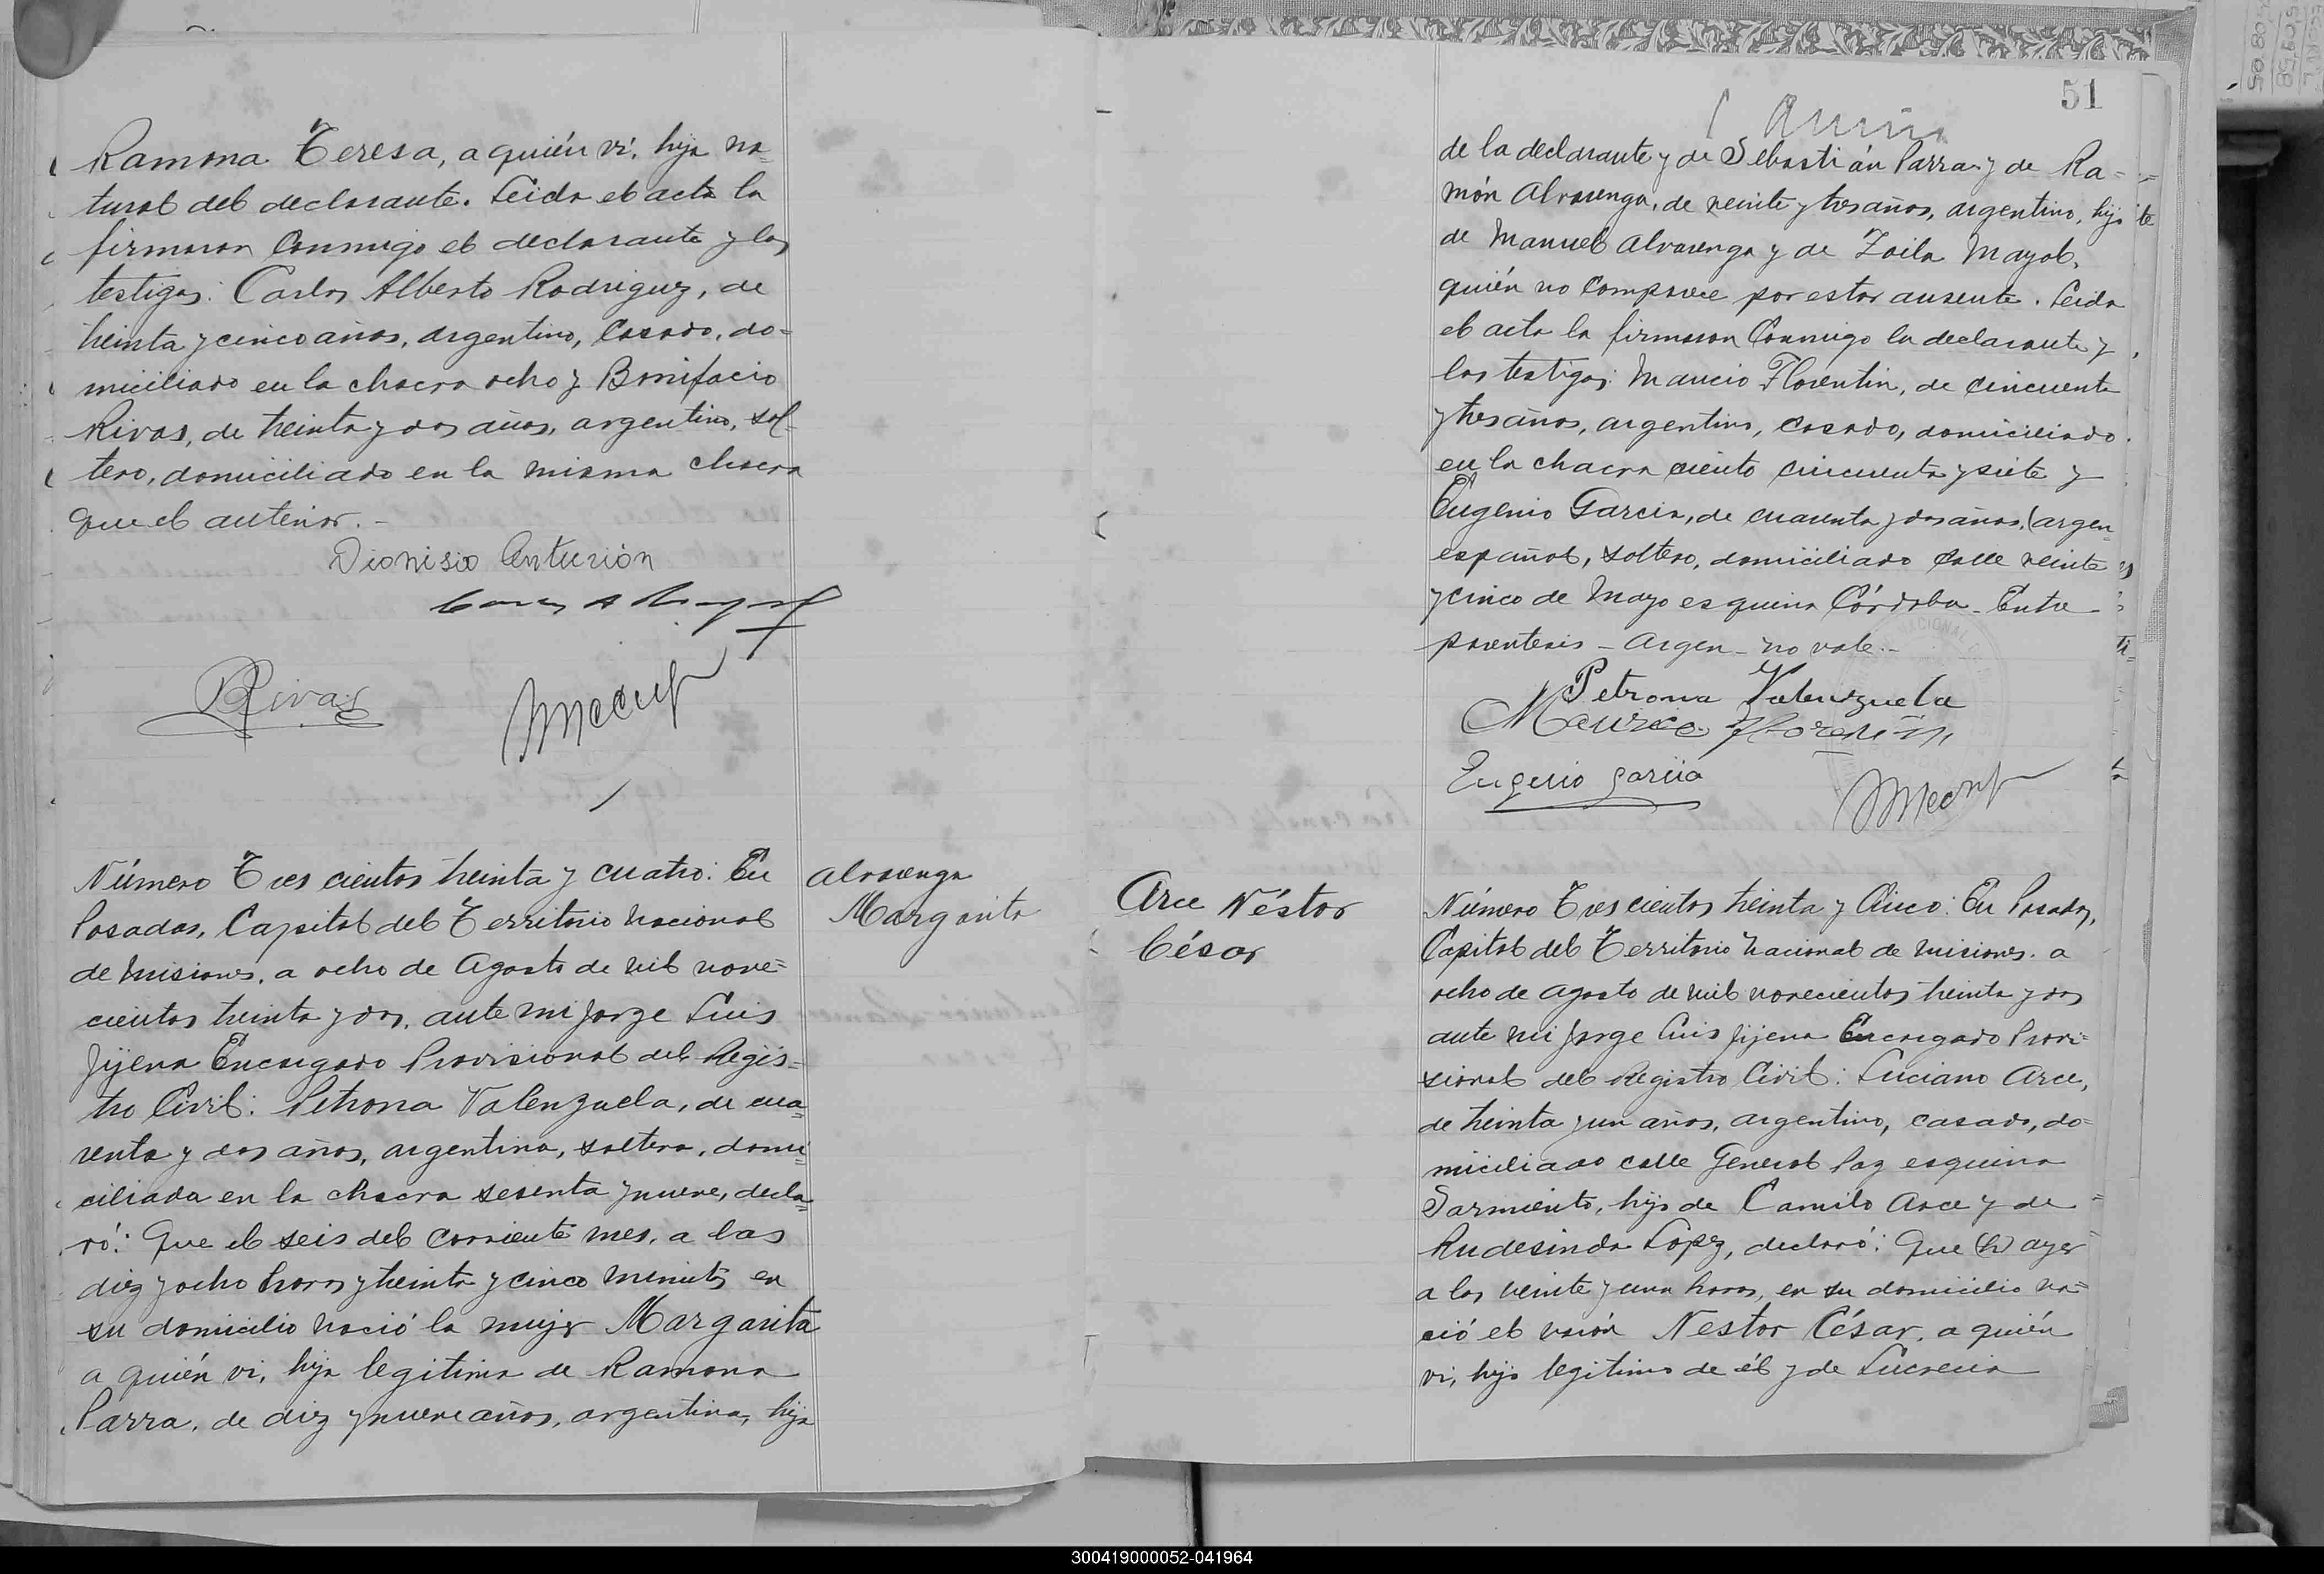 Ramona Teresa, a quién vi, hija na-
tural del declarante. Leida el acta la
firmaron conmigo el declarante y los
testigos: Carlos Alberto Rodriguez, de
treinta y cinco años, argentino, casado, do-
miciliado en la chacra ocho y Bonifacio
Rivas, de treinta y dos años, argentino, sol-
tero, domiciliado en la misma chacra
que el anterior.-
Dionisio Anturión
BRivas
Número Trescientos treinta y cuatro: En
Posadas, Capital del Territorio Nacional
de Misiones, a ocho de Agosto de mil nove-
cientos treinta y dos, ante mi Jorge Luis
Jijena Encargado Provisional del Regis-
tro Civil: Petrona Valenzuela, de cua-
renta y dos años, argentina, soltera, domi-
ciliada en la chacra sesenta y nueve, decla-
ró: Que el seis del corriente mes, a las
diez y ocho horas y treinta y cinco minutos en
su domicilio nació la mujer Margarita
a quién vi, hija legitima de Ramona
Parra, de diez y nueve años, argentina, hija
Alvarenga
Margarita
51
de la declarante y de Sebastián Parra y de Ra-
món Alvarenga, de veinte y tres años, argentino, hijo
de Manuel Alvarenga y de Zoila Mayol,
quién no comparece por estar ausente. Leida
el acta la firmaron conmigo la declarante y
los testigos: Maucio Florentin, de cincuenta
y tres años, argentino, casado, domiciliado
en la chacra ciento cincuenta y siete y
Eugenio Garcia, de cuarenta y dos años, (argen
español, soltero, domiciliado calle veinte
y cinco de Mayo esquina Córdoba - Entre
parentesis - argen - no vale.-
Petrona Valenzuela
Eugenio garcia
Arce Néstor
César
Número Trescientos treinta y Cinco: En Posadas,
Capital del Territorio Nacional de Misiones. a
ocho de agosto de mil novecientos treinta y dos
ante mi Jorge Luis Jijena Encargado Provi-
sional del Registro Civil: Luciano Arce,
de treinta y un años, argentino, casado, do-
miciliado calle General Paz esquina
Sarmiento, hijo de Camilo Arce y de
Rudesinda Lopez, declaró: Que (h) ayer
a las veinte y una horas, en su domicilio na-
ció el varón Nestor César, a quién
vi, hijo legitimo de él y de Lucrecia
300419000052-041964